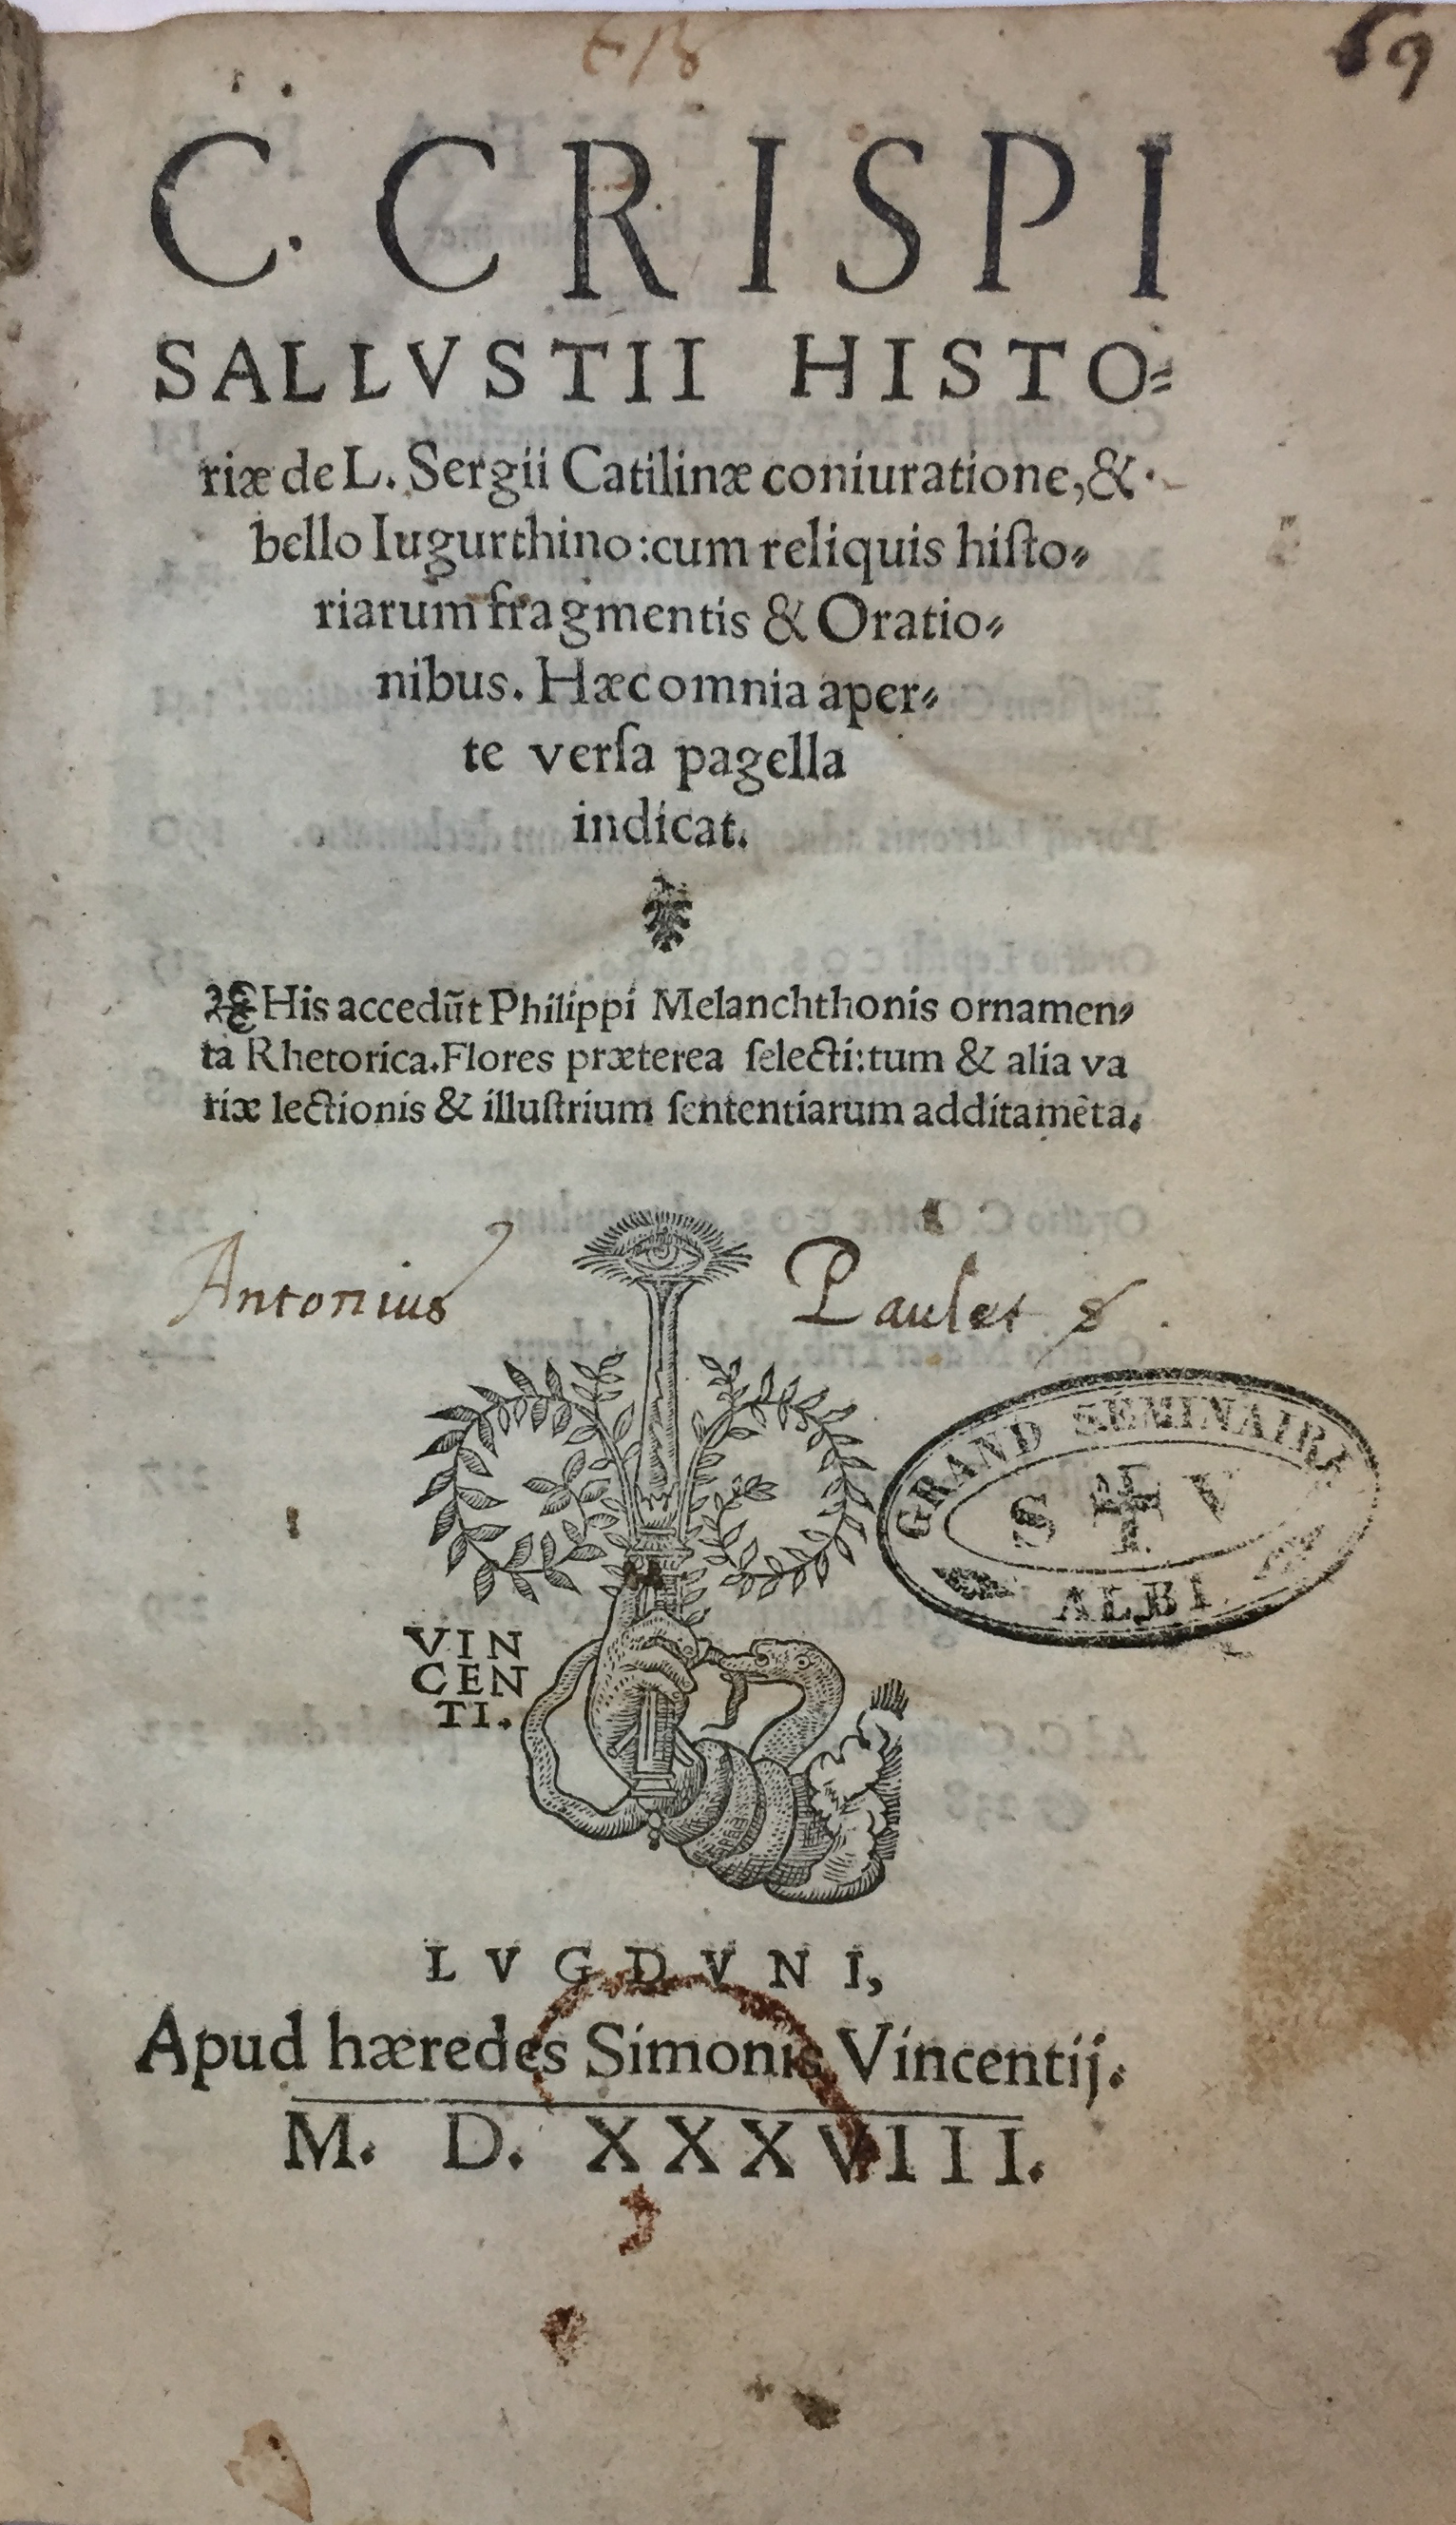 69
C. CRISPI
SALLVSTII HISTO⸗
riæ de L. Sergii Catilinæ coniuratione, &
bello Iugurthino: cum reliquis hiſto⸗
riarum fragmentis & Oratio⸗
nibus. Hæc omnia aper⸗
te verſa pagella
indicat.
His accedũt Philippi Melanchthonis ornamen⸗
ta Rhetorica. Flores præterea ſelecti: tum & alia va
riæ lectionis & illuſtrium ſententiarum additamẽta.
Antonius Paulet
GRAND SEMINAIRE
S V
ALBI
VIN
CEN
TI.
LVGDVNI,
Apud hæredes Simonis Vincentij.
M. D. XXXVIII.